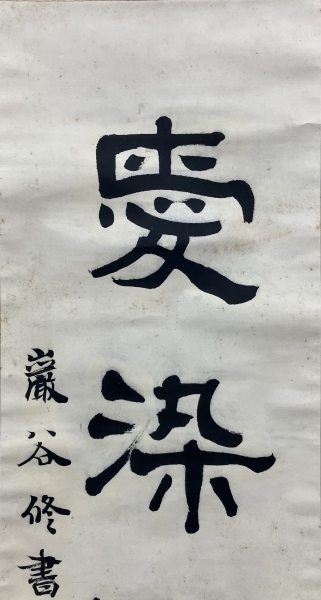 愛染
巖谷修書